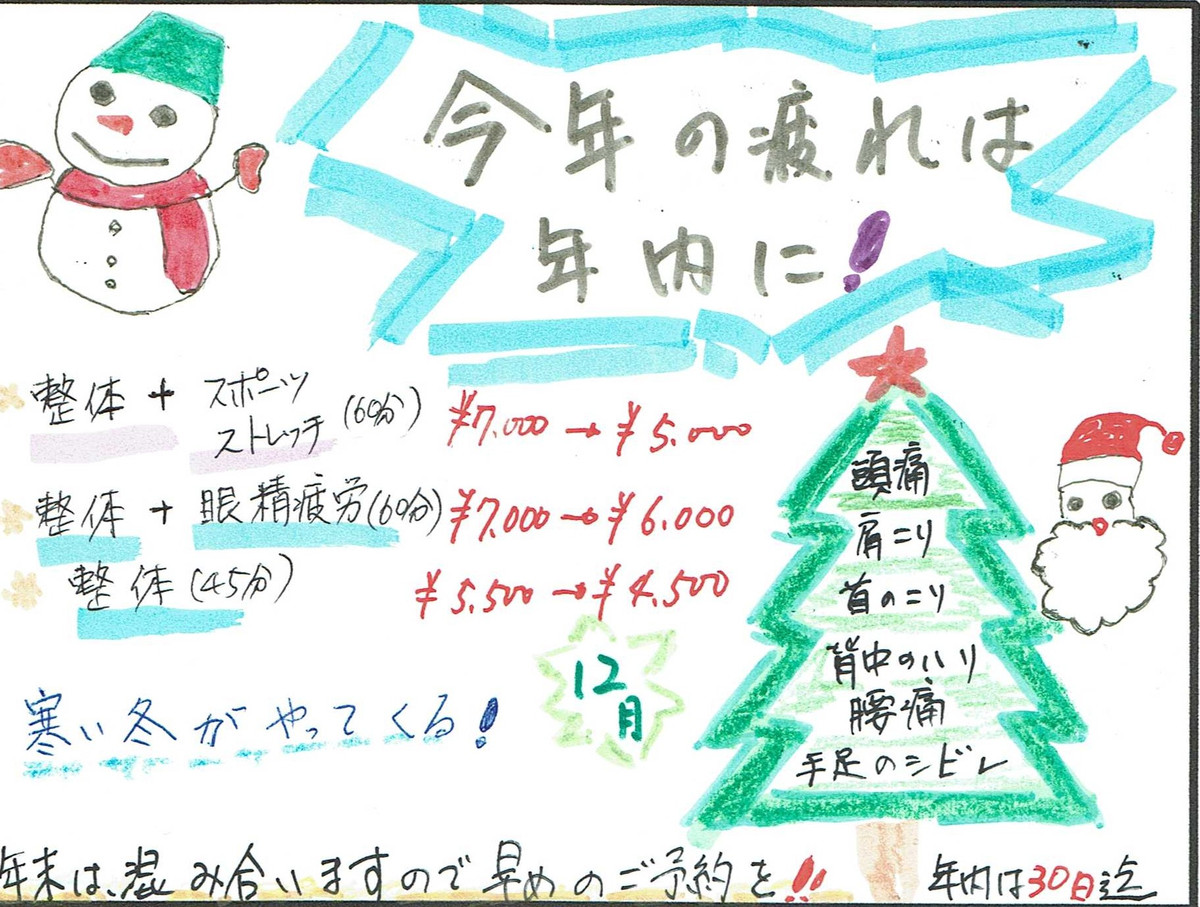 今年の疲れは
年内に!
整体 + スポーツ
ストレッチ (60分) ¥7,000 → ¥5,000
整体 + 眼精疲労(60分) ¥7,000 → ¥6,000
整体 (45分) ¥5,500 → ¥4,500
12
月
寒い冬がやってくる!
頭痛
肩こり
首のこり
背中のハリ
腰痛
手足のシビレ
年末は、混み合いますので早めのご予約を!!
年内は30日迄